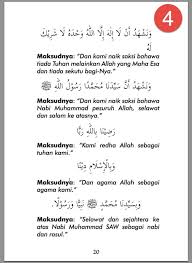 4
وَنَشْهَدُ أَنْ لَا إِلَهَ إِلَّا اللَّهُ وَحْدَهُ لَا شَرِيْكَ
لَهُ
Maksudnya: "Dan kami naik saksi bahawa
tiada Tuhan melainkan Allah yang Maha Esa
dan tiada sekutu bagi-Nya."
وَنَشْهَدُ أَنَّ سَيِّدَنَا مُحَمَّدًا رَسُوْلُ اللَّهِ ﷺ
Maksudnya: "Dan kami naik saksi bahawa
Nabi Muhammad pesuruh Allah, selawat
dan salam ke atasnya."
رَضِيْنَا بِاللَّهِ رَبًّا
Maksudnya: "Kami redha Allah sebagai
tuhan kami."
وَبِالْإِسْلَامِ دِيْنًا
Maksudnya: "Dan agama Allah sebagai
agama kami."
وَبِسَيِّدِنَا مُحَمَّدٍ ﷺ نَبِيًّا وَرَسُوْلًا.
Maksudnya: "Selawat dan sejahtera ke
atas Nabi Muhammad SAW sebagai nabi
dan rasul."
20